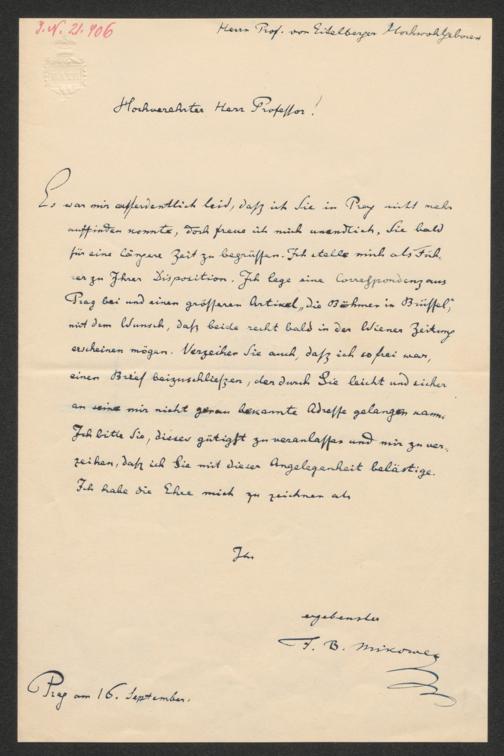 J.N. 21.906
Herrn Prof. von Eitelberger Hochwohlgeboren
BATH
Hochverehrter Herr Professor!
Es war mir außerdentlich leid, daß ich Sie in Prag nicht mehr
auffinden konnte, doch freue ich mich unendlich, Sie bald
für eine längere Zeit zu begrüßen. Ich stelle mich als Füh-
rer zu Ihrer Disposition. Ich lege eine Correspondenz aus
Prag bei und einen grösseren Artikel „die Böhmen in Brüssel",
mit dem Wunsch, daß beide recht bald in der Wiener Zeitung
erscheinen mögen. Verzeihen Sie auch, daß ich so frei war,
einen Brief beizuschließen, der durch Sie leicht und sicher
an seine mir nicht genau bekannte Adresse gelangen kann.
Ich bitte Sie, dieses gütigst zu veranlassen und mir zu ver-
zeihen, daß ich Sie mit dieser Angelegenheit belästige.
Ich habe die Ehre mich zu zeichnen als
Ihr
ergebenster
F. B. Mikowec
Prag am 16. September.